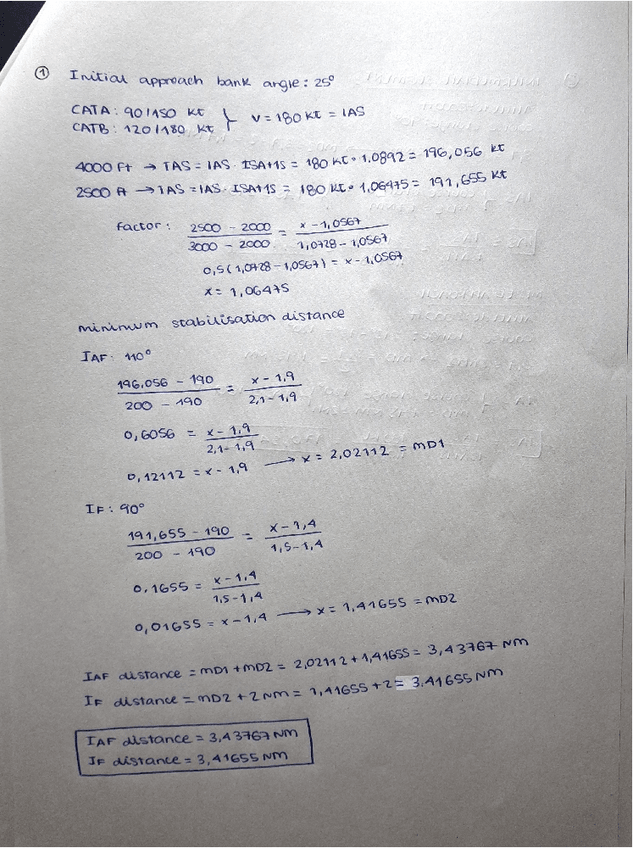 ① Initial approach bank angle: 25°
CATA: 90/150 kt
CATB: 120/180 kt } V = 180 kt = IAS
4000 ft → TAS = IAS · ISA+15 = 180 kt · 1.0892 = 196,056 kt
2500 ft → TAS = IAS · ISA+15 = 180 kt · 1,06475 = 191,655 kt
Factor: (2500 - 2000)/(3000 - 2000) = (x - 1,0567)/(1,0728 - 1,0567)
0,5(1,0728 - 1,0567) = x - 1,0567
x = 1,06475
minimum stabilisation distance
IAF: 110°
(196,056 - 190)/(200 - 190) = (x - 1,9)/(2,1 - 1,9)
0,6056 = (x - 1,9)/(2,1 - 1,9)
0,12112 = x - 1,9 → x = 2,02112 = MD1
IF: 90°
(191,655 - 190)/(200 - 190) = (x - 1,4)/(1,5 - 1,4)
0,1655 = (x - 1,4)/(1,5 - 1,4)
0,01655 = x - 1,4 → x = 1,41655 = MD2
IAF distance = MD1 + MD2 = 2,02112 + 1,41655 = 3,43767 NM
IF distance = MD2 + 2 NM = 1,41655 + 2 = 3.41655 NM
IAF distance = 3,43767 NM
IF distance = 3,41655 NM